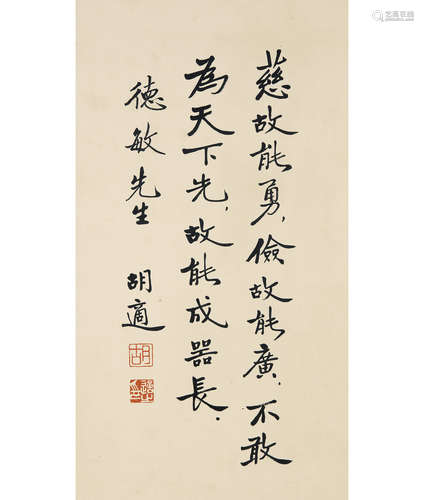 慈故能勇,儉故能廣.不敢
為天下先,故能成器長.
德敏先生
胡適
胡